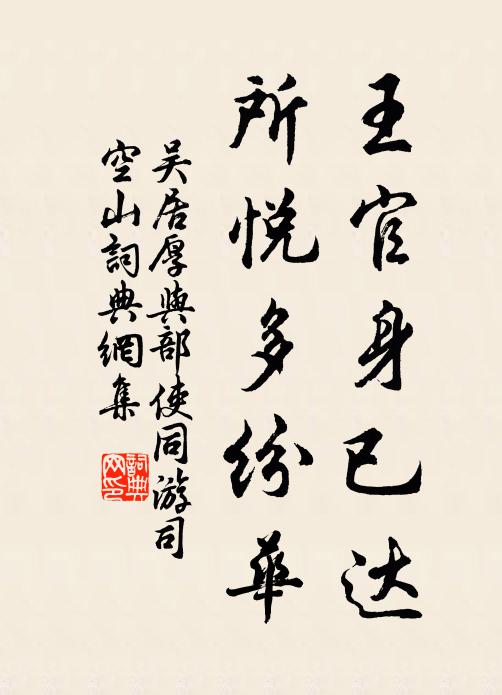 王官身已达
所悦多纷华
吴居厚與部使同游司
空山詞典網集
詞典网印